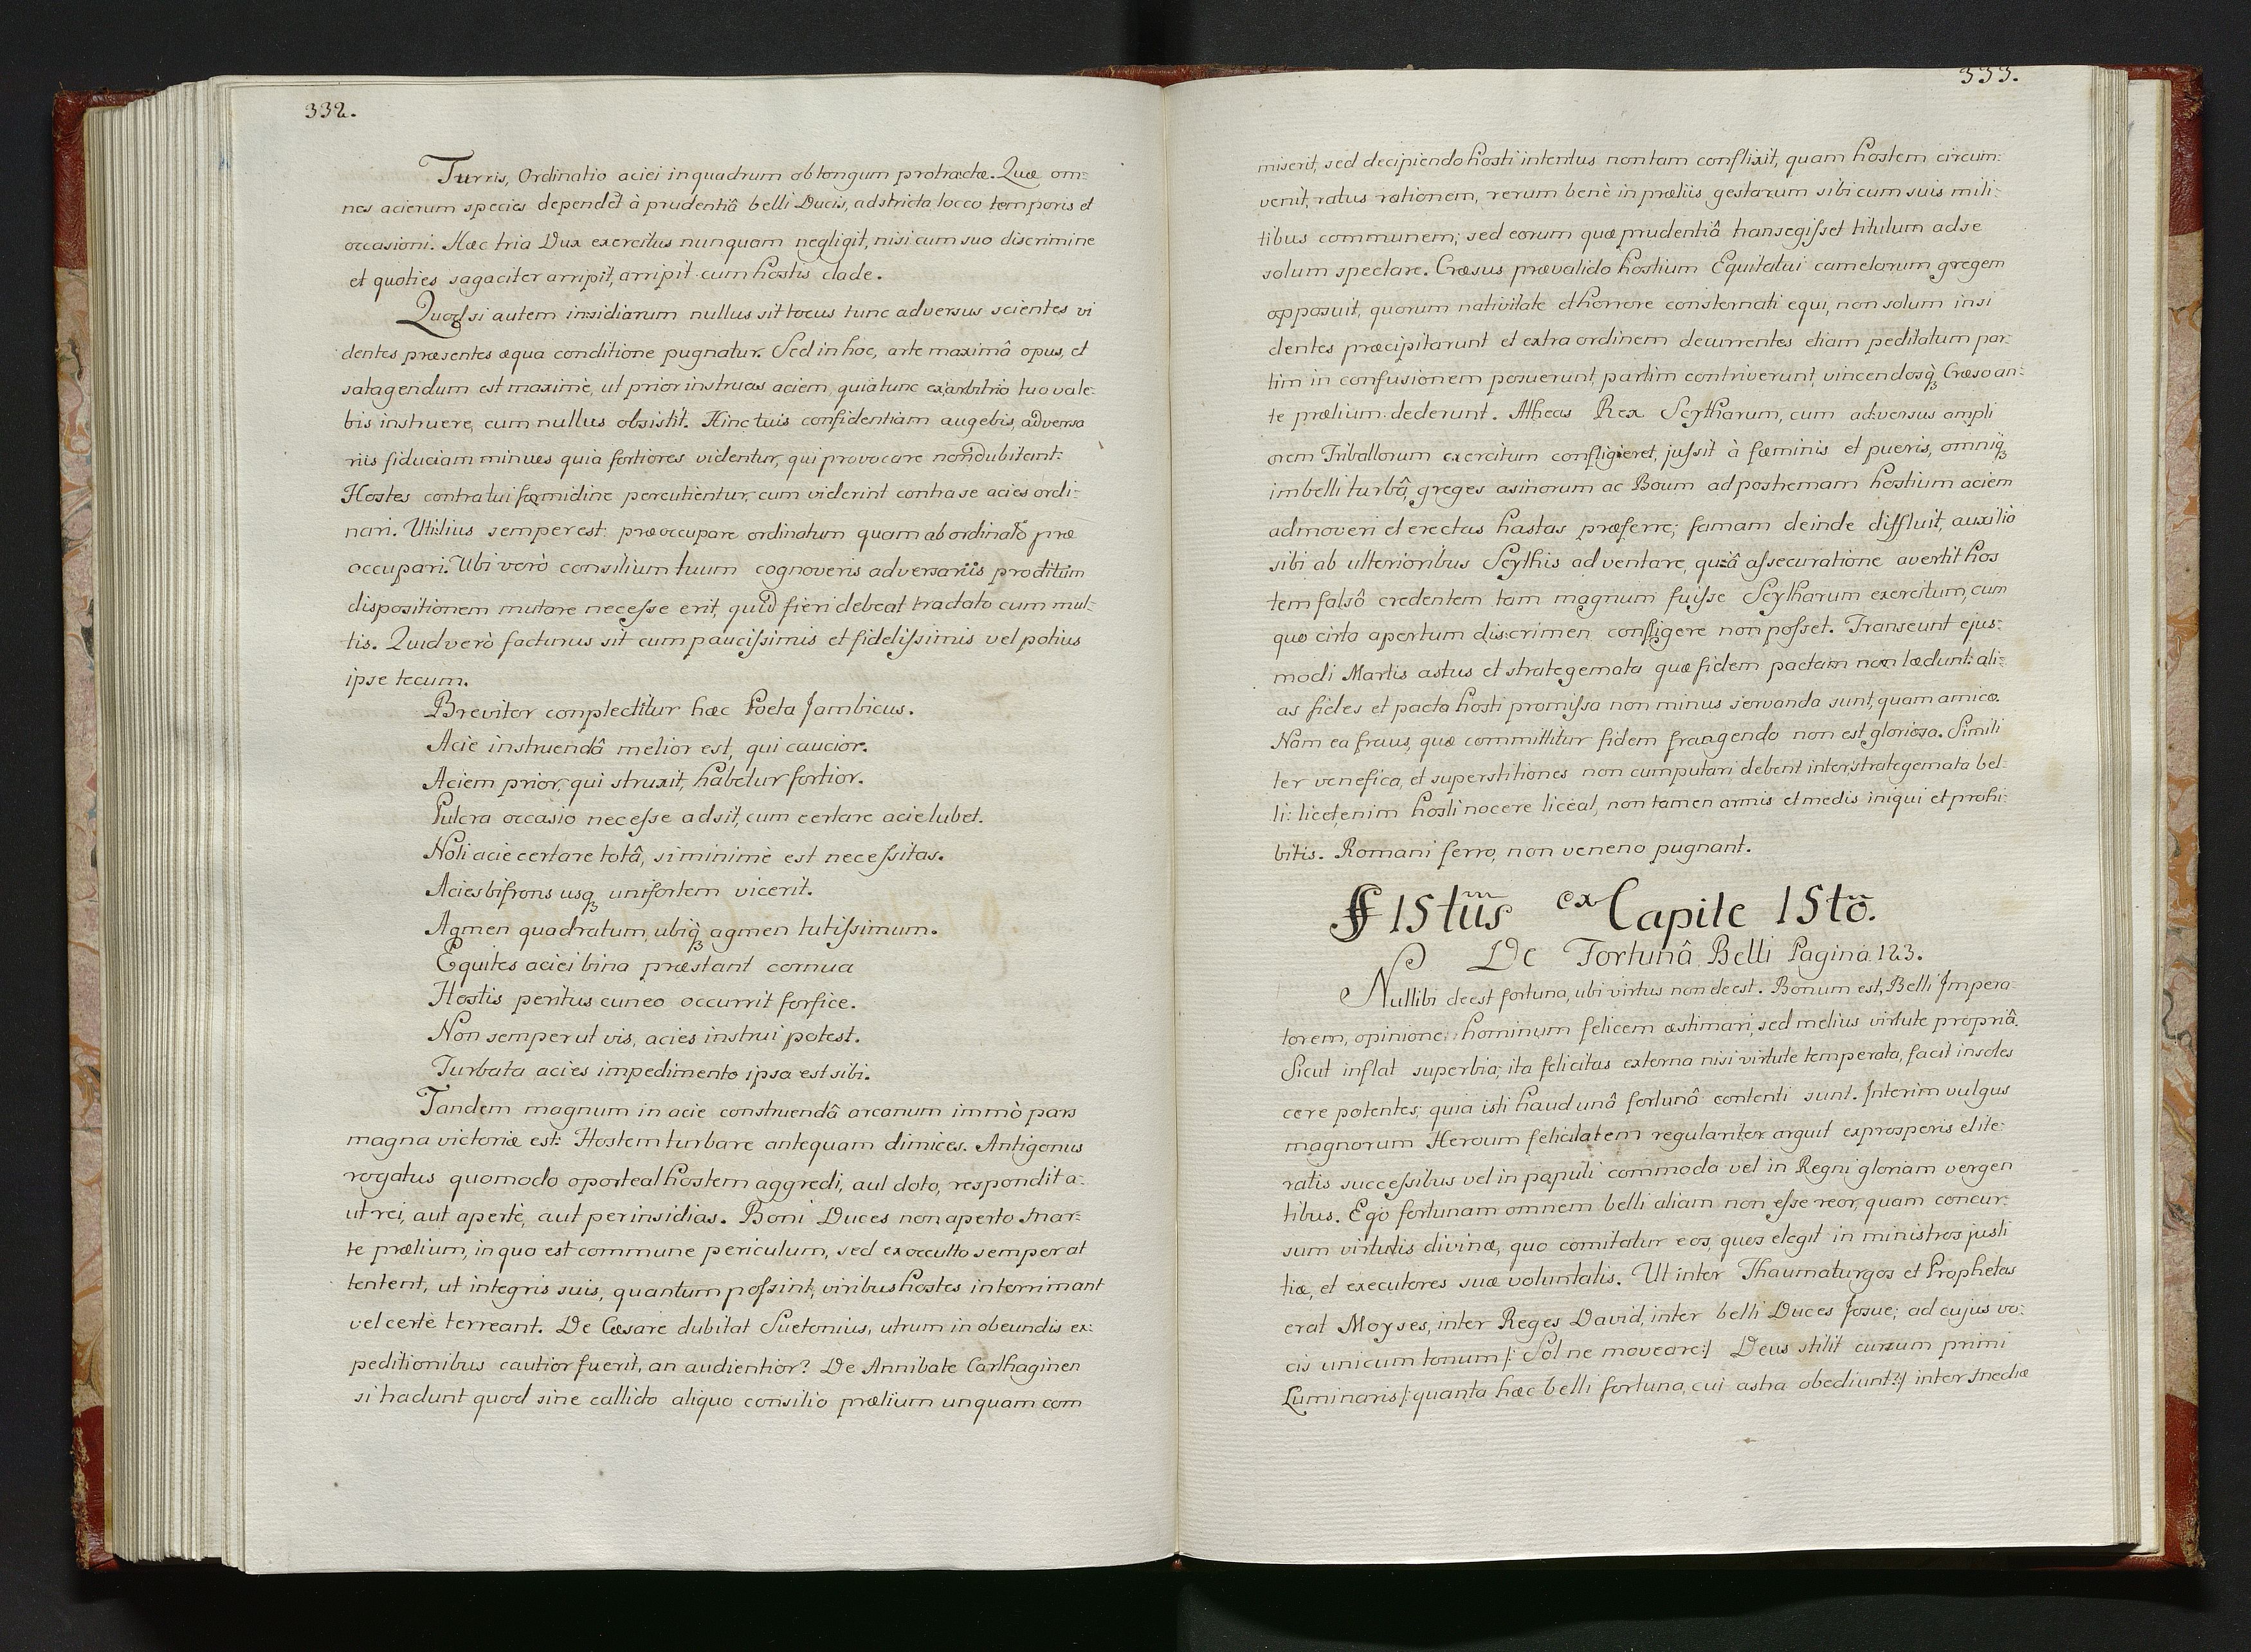 332.
Turris, Ordinatio aciei in quadrum oblongum protractæ. Quæ om=
nes acierum species dependēt à prudentiâ belli Ducis, adstricta locco temporis et
occasioni. Hæc tria Dux exercitus nunquam negligit, nisi cum suo discrimine
et quoties sagaciter arripit, arripit cum hostis clade.
Quod si autem insidiarum nullus sit locus tunc adversus scientes vi
dentes præsentes æqua conditione pugnatur. Sed in hoc, arte maximâ opus, et
satagendum est maximè, ut prior instruas aciem, quia tunc ex arbitrio tuo vale=
bis instruere, cum nullus obsistit. Hinc tuis confidentiam augebis, adversa
riis fiduciam minues quia fortiores videntur, qui provocare non dubitant:
Hostes contra tui formidine percutientur, cum viderint contra se acies ordi=
nari. Utilius semper est præoccupare ordinatum quam ab ordinato præ
occupari. Ubi verò consilium tuum cognoveris adversariis proditum
dispositionem mutare necesse erit, quid fieri debeat tractato cum mul=
tis. Quid verò facturus sit cum paucissimis et fidelissimis vel potius
ipse tecum.
Brevitor conplectitur hæc Poeta Jambicus.
Acie instruendâ melior est, qui caucior.
Aciem prior, qui struxit, habetur fortior.
Pulcra occasio necesse adsit, cum certare acie lubet.
Noli acie certare totâ, si minimè est necessitas.
Acies bifrons usq3 unifortem vicerit.
Agmen quadratum, ubiq3 agmen tutissimum.
Equites aciei bina præstant cornua
Hostis peritus cuneo occurrit forfice.
Non semper ut vis, acies instrui potest.
Turbata acies impedimento ipsa est sibi.
Tandem magnum in acie construendâ arcanum immò pars
magna victoriæ est: Hostem turbare antequam dimices. Antigonus
rogatus quomodo oporteat hostem aggredi, aut dolo, respondit a=
ut rei, aut apertè, aut per insidias. Boni Duces non aperto Mar=
te prælium, in quo est commune periculum, sed ex occulto semper at
tentent, ut integris suis, quantum possint, viribus hostes interrimant
vel certè terreant. De Cæsare dubitat Suetonius, utrum in obeundis ex=
peditionibus cautior fuerit, an audientior? De Annibale Carthaginen
si tradunt quod sine callido aliquo consilio prælium unquam com
333.
miserit, sed decipiendo hosti intentus non tam conflixit, quam hostem circum=
venit, ratus rationem, rerum benè in præliis gestarum sibi cum suis mili=
tibus communem; sed eorum quæ prudentiâ transegisset titulum ad se
solum spectare. Cræsus prævalido hostium Equitatui camelorum gregem
opposuit, quorum nativitate et horrore consternati equi, non solum insi
dentes præcipitarunt et extra ordinem decurrentes etiam peditatum par=
tim in confusionem posuerunt, partim contriverunt, vincendosq3 Cræso an=
te prælium dederunt. Atheas Rex Scytharum, cum adversus ampli
orem Triballorum exercitum confligieret, jussit à fæminis et pueris, omniq3
imbelli turbâ, greges asinorum ac Boum ad postremam hostium aciem
admoveri et erectas hastas præferre; famam deinde diffluit, auxilio
sibi ab ulterioribus Scythis adventare, quâ assecuratione avertit hos
tem falsô credentem tam magnum fuisse Scytharum exercitum, cum
quo cirta apertum discrimen confligere non posset. Transeunt ejus=
modi Martis astus et strategemata quæ fidem pactam non lædunt: ali=
as fides et pacta hosti promissa non minus servanda sunt, quam amico.
Nam ea fraus, quæ committitur fidem frangendo non est gloriosa. Simili
ter venefica, et superstitiones non cumputari debent inter strategemata bel
li: licet enim hosti nocere liceat, non tamen armis et medis iniqui et prohi=
bitis. Romani ferro, non veneno pugnant.
§ 15tus ex Capite 15to.
De Fortunâ Belli Pagina 123.
Nullibi deest fortuna, ubi virtus non deest. Bonum est, Belli Impera=
torem, opinione hominum felicem æstimari, sed melius virtute propriâ.
Sicut inflat superbia; ita felicitas externa nisi virtute temperata, facit insoles
cere potentes; quia isti haud unâ fortunâ contenti sunt. Interim vulgus
magnorum Heroum felicitatem regulariter arguit ex prosperis et ite=
ratis successibus vel in populi commoda vel in Regni gloriam vergen
tibus. Ego fortunam omnem belli aliam non esse reor, quam concur=
sum virtutis divinæ, quo comitatur eos, quos elegit in ministros justi
tiæ, et executores suæ voluntatis. Ut inter Thaumaturgos et Prophetas
erat Moyses, inter Reges David, inter belli Duces Josue; ad cujus vo=
cis unicum tonum /: Sol ne moveare :/ Deus stitit cursum primi
Luminaris /: quanta hæc belli fortuna, cui astra obediunt? :/ inter Mediæ